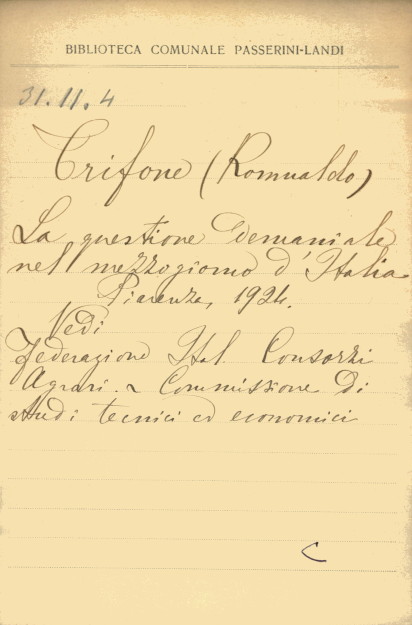 BIBLIOTECA COMUNALE PASSERINI-LANDI
31.11.4
Trifone (Romualdo)
La questione demaniale
nel mezzogiorno d'Italia
Piacenza, 1924.
Vedi
Federazione Ital. Consorzi
Agrari. Commissione di
studi tecnici ed economici
C